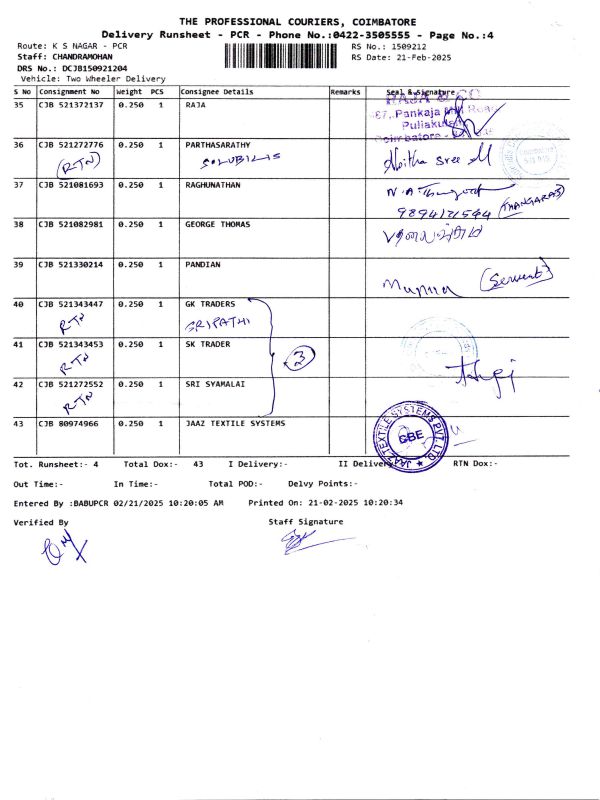 THE PROFESSIONAL COURIERS, COIMBATORE
Delivery Runsheet - PCR - Phone No.:0422-3505555 - Page No.:4
Route: K S NAGAR - PCR RS No.: 1509212
Staff: CHANDRAMOHAN RS Date: 21-Feb-2025
DRS No.: DCJB150921204
Vehicle: Two Wheeler Delivery
S No Consignment No Weight PCS Consignee Details Remarks Seal & Signature
35 CJB 521372137 0.250 1 RAJA RAJA & CO
Pankaja Mill Road
Puliakulam
Coimbatore
36 CJB 521272776 0.250 1 PARTHASARATHY
(RTN) SOLUBILIS Sree M
37 CJB 521081693 0.250 1 RAGHUNATHAN
9894121544 (THANGARAJ)
38 CJB 521082981 0.250 1 GEORGE THOMAS
39 CJB 521330214 0.250 1 PANDIAN
(Servent)
40 CJB 521343447 0.250 1 GK TRADERS
RTN SRIPATHI
41 CJB 521343453 0.250 1 SK TRADER
RTN 3
42 CJB 521272552 0.250 1 SRI SYAMALAI
RTN
43 CJB 80974966 0.250 1 JAAZ TEXTILE SYSTEMS JAAZ TEXTILE SYSTEMS PVT. LTD. CBE
Tot. Runsheet:- 4 Total Dox:- 43 I Delivery:- II Delivery:- RTN Dox:-
Out Time:- In Time:- Total POD:- Delvy Points:-
Entered By :BABUPCR 02/21/2025 10:20:05 AM Printed On: 21-02-2025 10:20:34
Verified By Staff Signature